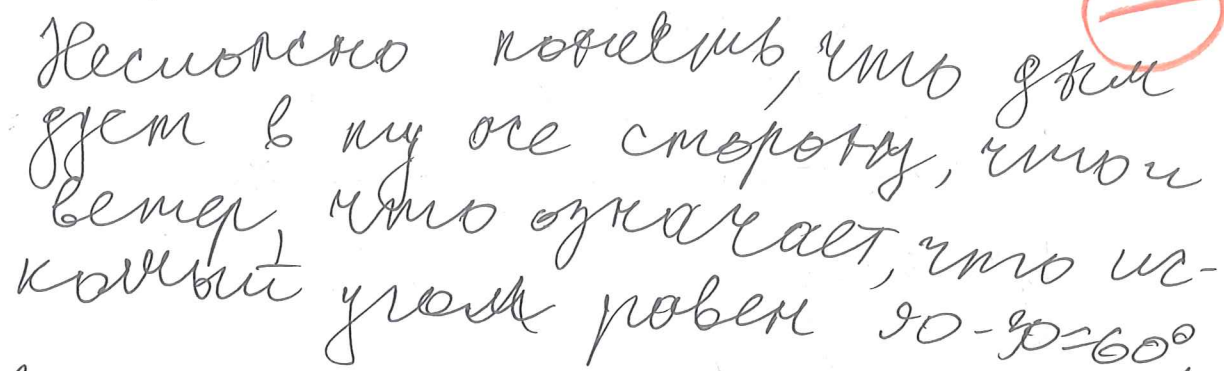 Несложно понять, что дым
дует в ту же сторону, что и
ветер, что означает, что ис-
комый угол равен 90-30=60°.